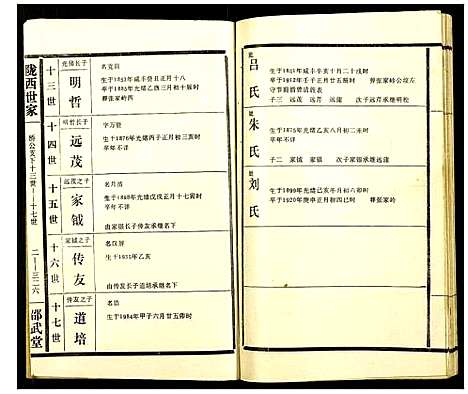 陇西世家
桥公支下十三世—十七世
二—三二六
邵武堂
十三世
光储长子
明哲
生于1853年咸丰癸丑正月十八
卒于1885年光绪乙酉三月初十辰时
葬张家岭西
十四世
明哲长子
远茂
字万登
生于1876年光绪丙子正月初三亥时
卒年不详
十五世
远茂之子
家钺
名月清
生于1898年光绪戊戌正月十七寅时
卒年不详
由家镇长子传友承继名下
十六世
家钺之子
传友
生于1935年乙亥
由传友长子道培承继名下
十七世
传友之子
道培
名浩
生于1984年甲子六月廿五卯时
妣
吕氏
生于1851年咸丰辛亥十月二十戌时
卒于1912年壬子正月廿五辰时 葬张家岭公坟左
守节前翁曾请旌表
子三 远茂 远芹 远谋 次子远芹承继明松
妣
朱氏
生于1875年光绪乙亥八月初二未时
卒年不详
子二 家钺 家镇 次子家镇承继远谋
妣
刘氏
生于1899年光绪己亥冬月初六卯时
卒于1920年庚申正月初四巳时 葬张家岭